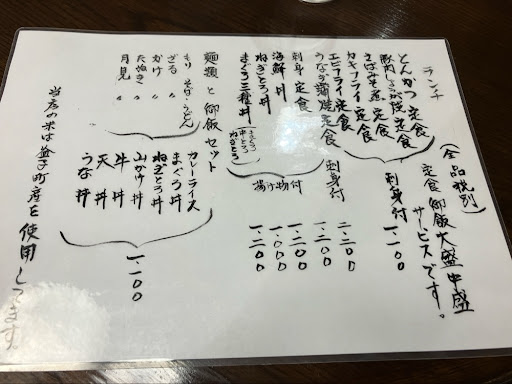 ランチ
(全品税別)
定食御飯大盛中盛
サービスです。
とんかつ定食
豚肉しょうが焼定食
さばみそ煮定食
カキフライ定食
刺身付 一、一〇〇
エビフライ定食
うなぎ蒲焼定食
刺身付 二、二〇〇
刺身定食 一、二〇〇
海鮮丼
ねぎとろ丼
まぐろ三種丼
ねぎとろ
揚げ物付
一、二〇〇
一、〇〇〇
一、二〇〇
麺類と御飯セット
もり そば・うどん
ざる 〃
かけ 〃
たぬき 〃
月見 〃
カレーライス
まぐろ丼
ねぎとろ丼
山かけ丼
牛丼
天丼
うな丼
一、一〇〇
当店の米は益子町産を使用してます。